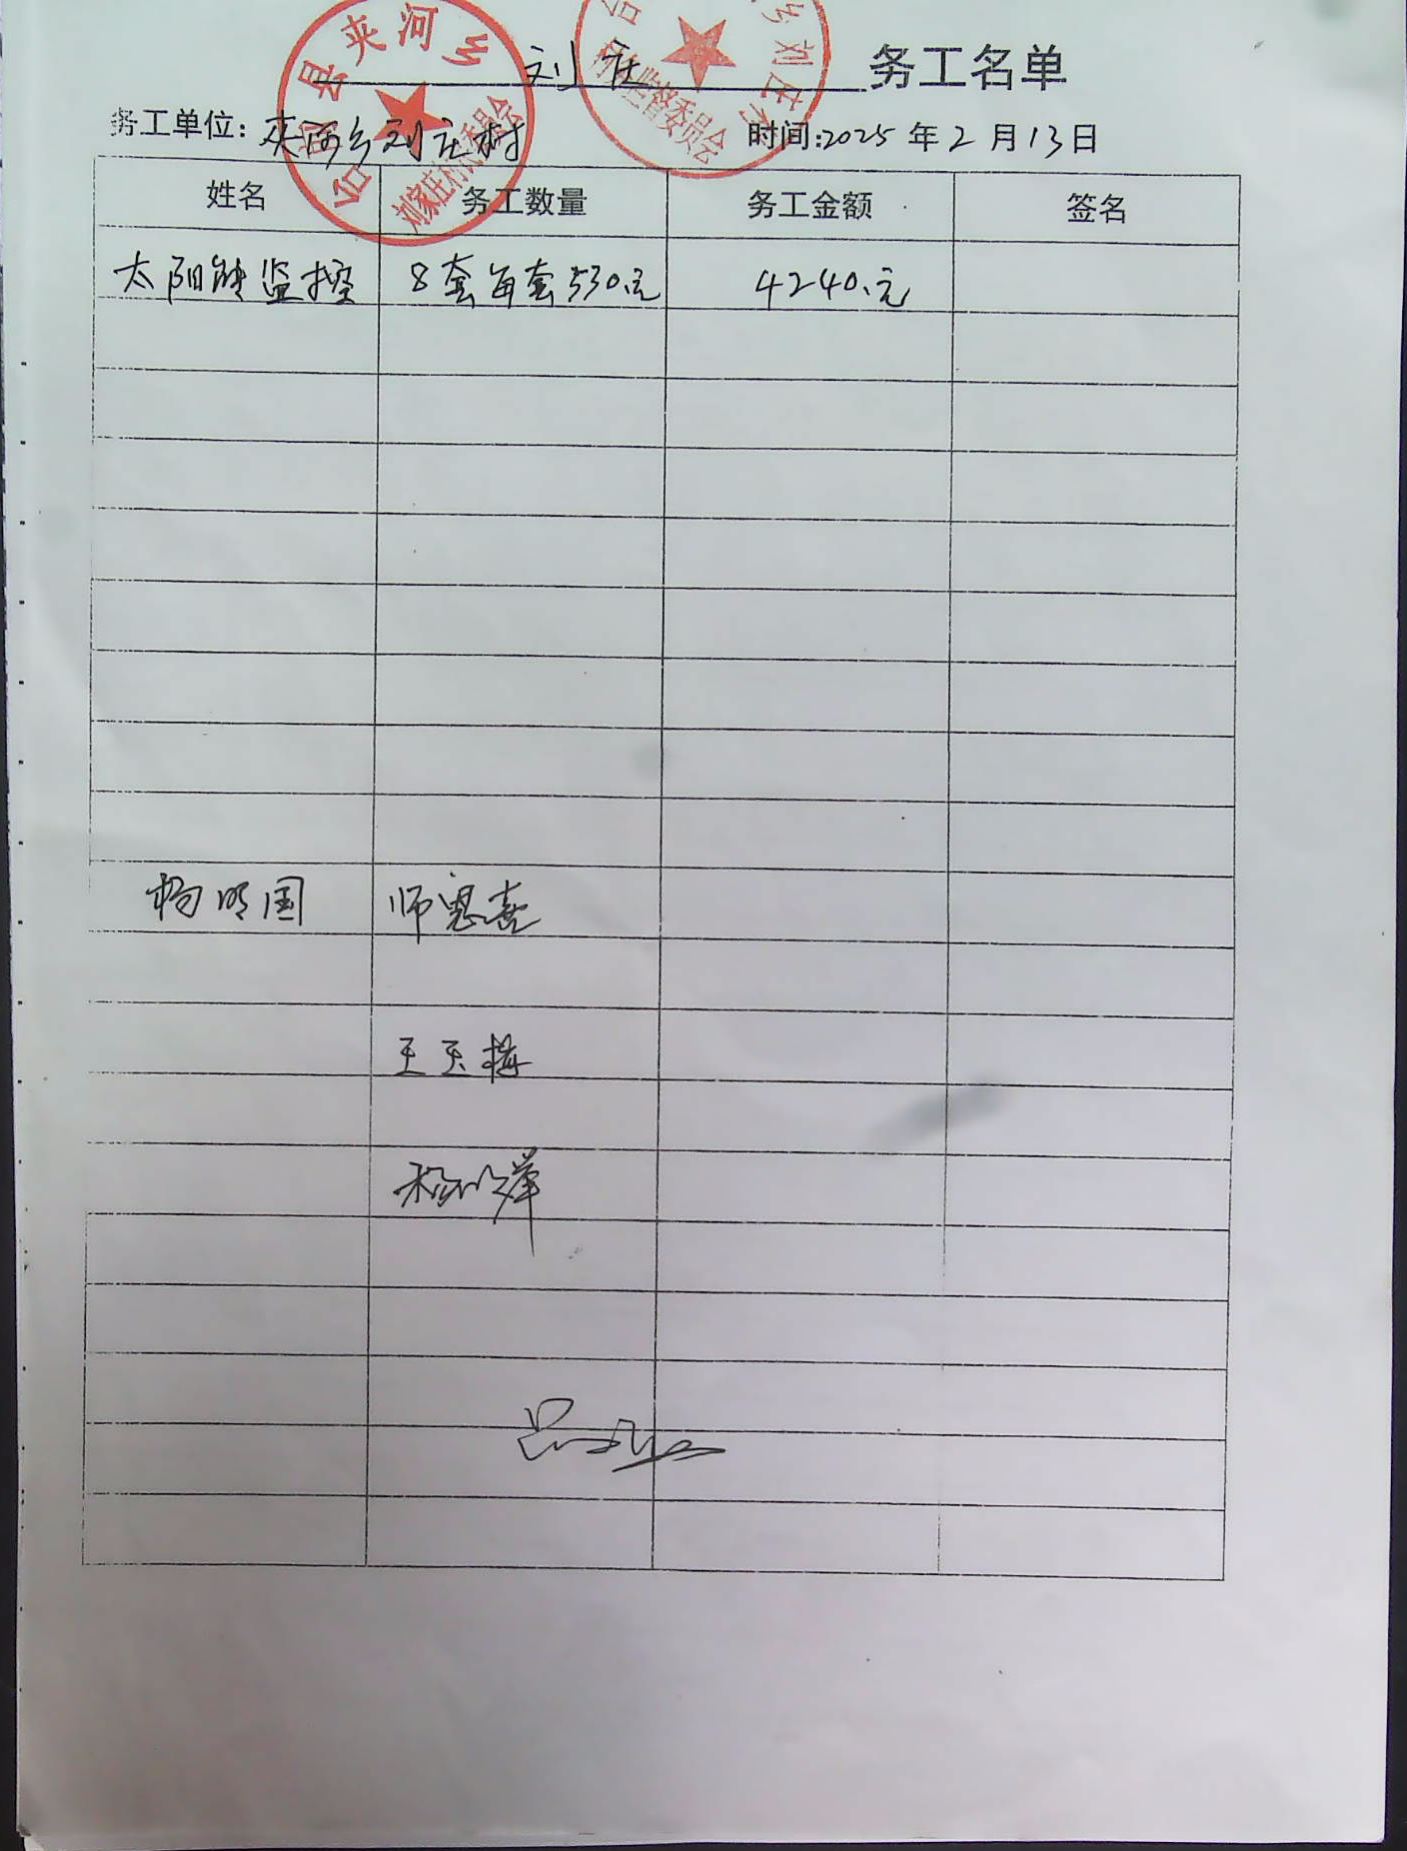 刘庄 务工名单
务工单位:夹河乡刘庄村 时间:2025年2月13日
姓名 务工数量 务工金额 签名
太阳能监控 8套每套530元 4240.元
杨明国 师恩喜
王玉梅
县夹河乡
乡刘庄村
村务监督委员会